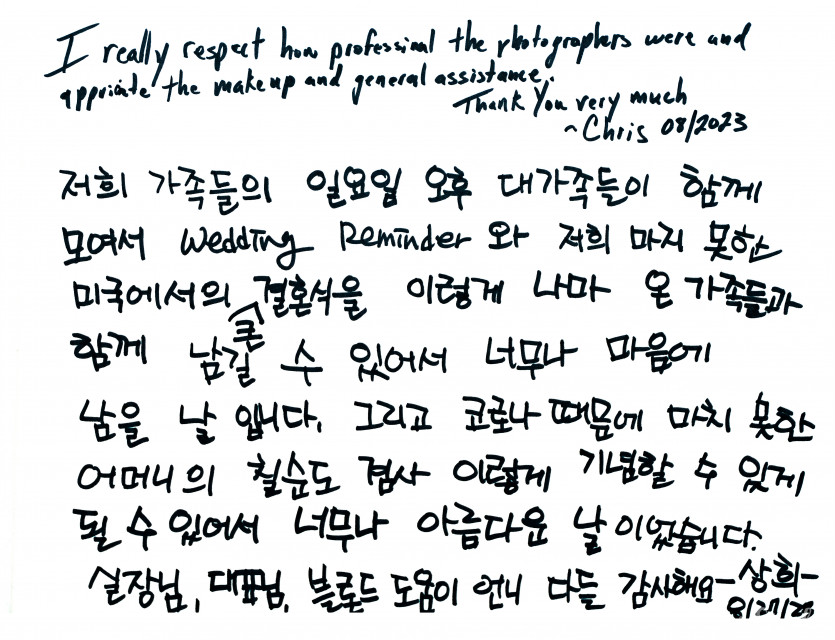 I really respect how professional the photographers were and
appriciate the makeup and general assistance.
Thank You very much
~Chris 08/2023
저희 가족들의 일요일 오후 대가족들이 함께
모여서 Wedding Reminder 와 저희 마지 못한
미국에서의 결혼식을 이렇게 나마 온 가족들과
함께 남길 수 있어서 너무나 마음에
남을 날 입니다. 그리고 코로나 때문에 마치 못한
어머니의 칠순도 겸사 이렇게 기념할 수 있게
될 수 있어서 너무나 아름다운 날이었습니다.
실장님, 대표님, 블로드 도움이 언니 다들 감사해요 -상희-
8/27/23